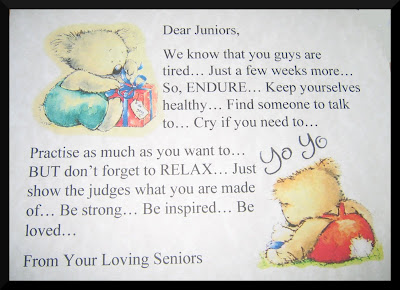 Dear Juniors,
We know that you guys are
tired… Just a few weeks more…
So, ENDURE… Keep yourselves
healthy… Find someone to talk
to… Cry if you need to…
Practise as much as you want to…
BUT don't forget to RELAX… Just
show the judges what you are made
of… Be strong… Be inspired… Be
loved…
Yo Yo
From Your Loving Seniors